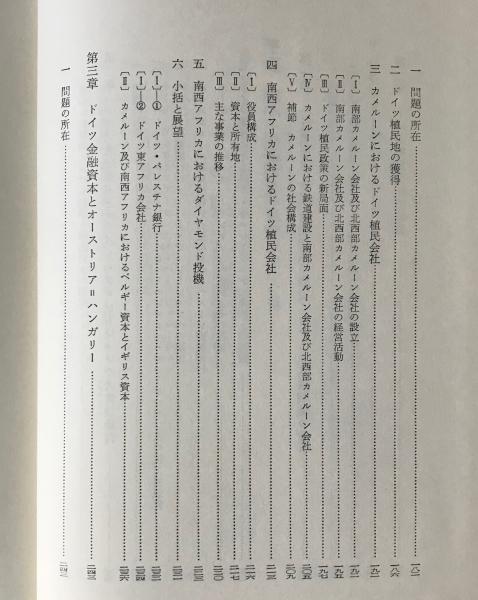 一 問題の所在……一八一
二 ドイツ植民地の獲得……一八六
三 カメルーンにおけるドイツ植民会社……一九一
〔Ⅰ〕 南部カメルーン会社及び北西部カメルーン会社の設立……一九一
〔Ⅱ〕 南部カメルーン会社及び北西部カメルーン会社の経営活動……一九五
〔Ⅲ〕 ドイツ植民政策の新局面……一九七
〔Ⅳ〕 カメルーンにおける鉄道建設と南部カメルーン会社及び北西部カメルーン会社……二〇五
〔Ⅴ〕 補節 カメルーンの社会構成……二〇九
四 南西アフリカにおけるドイツ植民会社……二一三
〔Ⅰ〕 役員構成……二一六
〔Ⅱ〕 資本と所有地……二一七
〔Ⅲ〕 主な事業の推移……二二〇
五 南西アフリカにおけるダイヤモンド投機……二二三
六 小括と展望……二三二
〔Ⅰ〕―① ドイツ・パレスチナ銀行……二三三
〔Ⅰ〕―② ドイツ東アフリカ会社……二三四
〔Ⅱ〕 カメルーン及び南西アフリカにおけるベルギー資本とイギリス資本……二三六
第三章 ドイツ金融資本とオーストリア＝ハンガリー……二四三
一 問題の所在……二四三